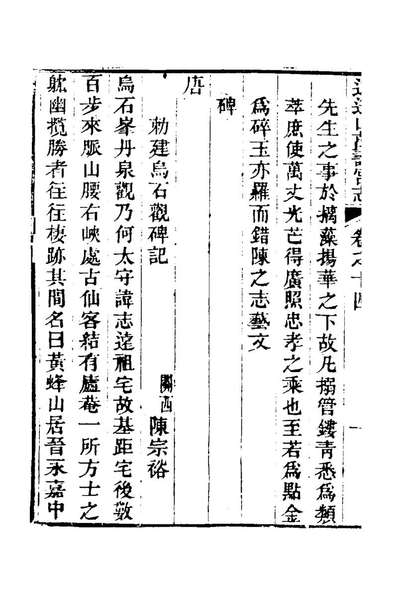 逍遙山萬壽宮志 卷之十四
先生之事於摛藻揚華之下故凡搦管鏤青悉為類
萃庶使萬丈光芒得廣照忠孝之乘也至若為點金
為碎玉亦羅而錯陳之志藝文
碑
唐
勅建烏石觀碑記
關西陳宗裕
烏石峯丹泉觀乃何太守諱志達祖宅故基距宅後數
百步來脈山腰右峽處古仙客結有廬菴一所方士之
躭幽攬勝者往往棲跡其間名曰黃蜂山居晉永嘉中